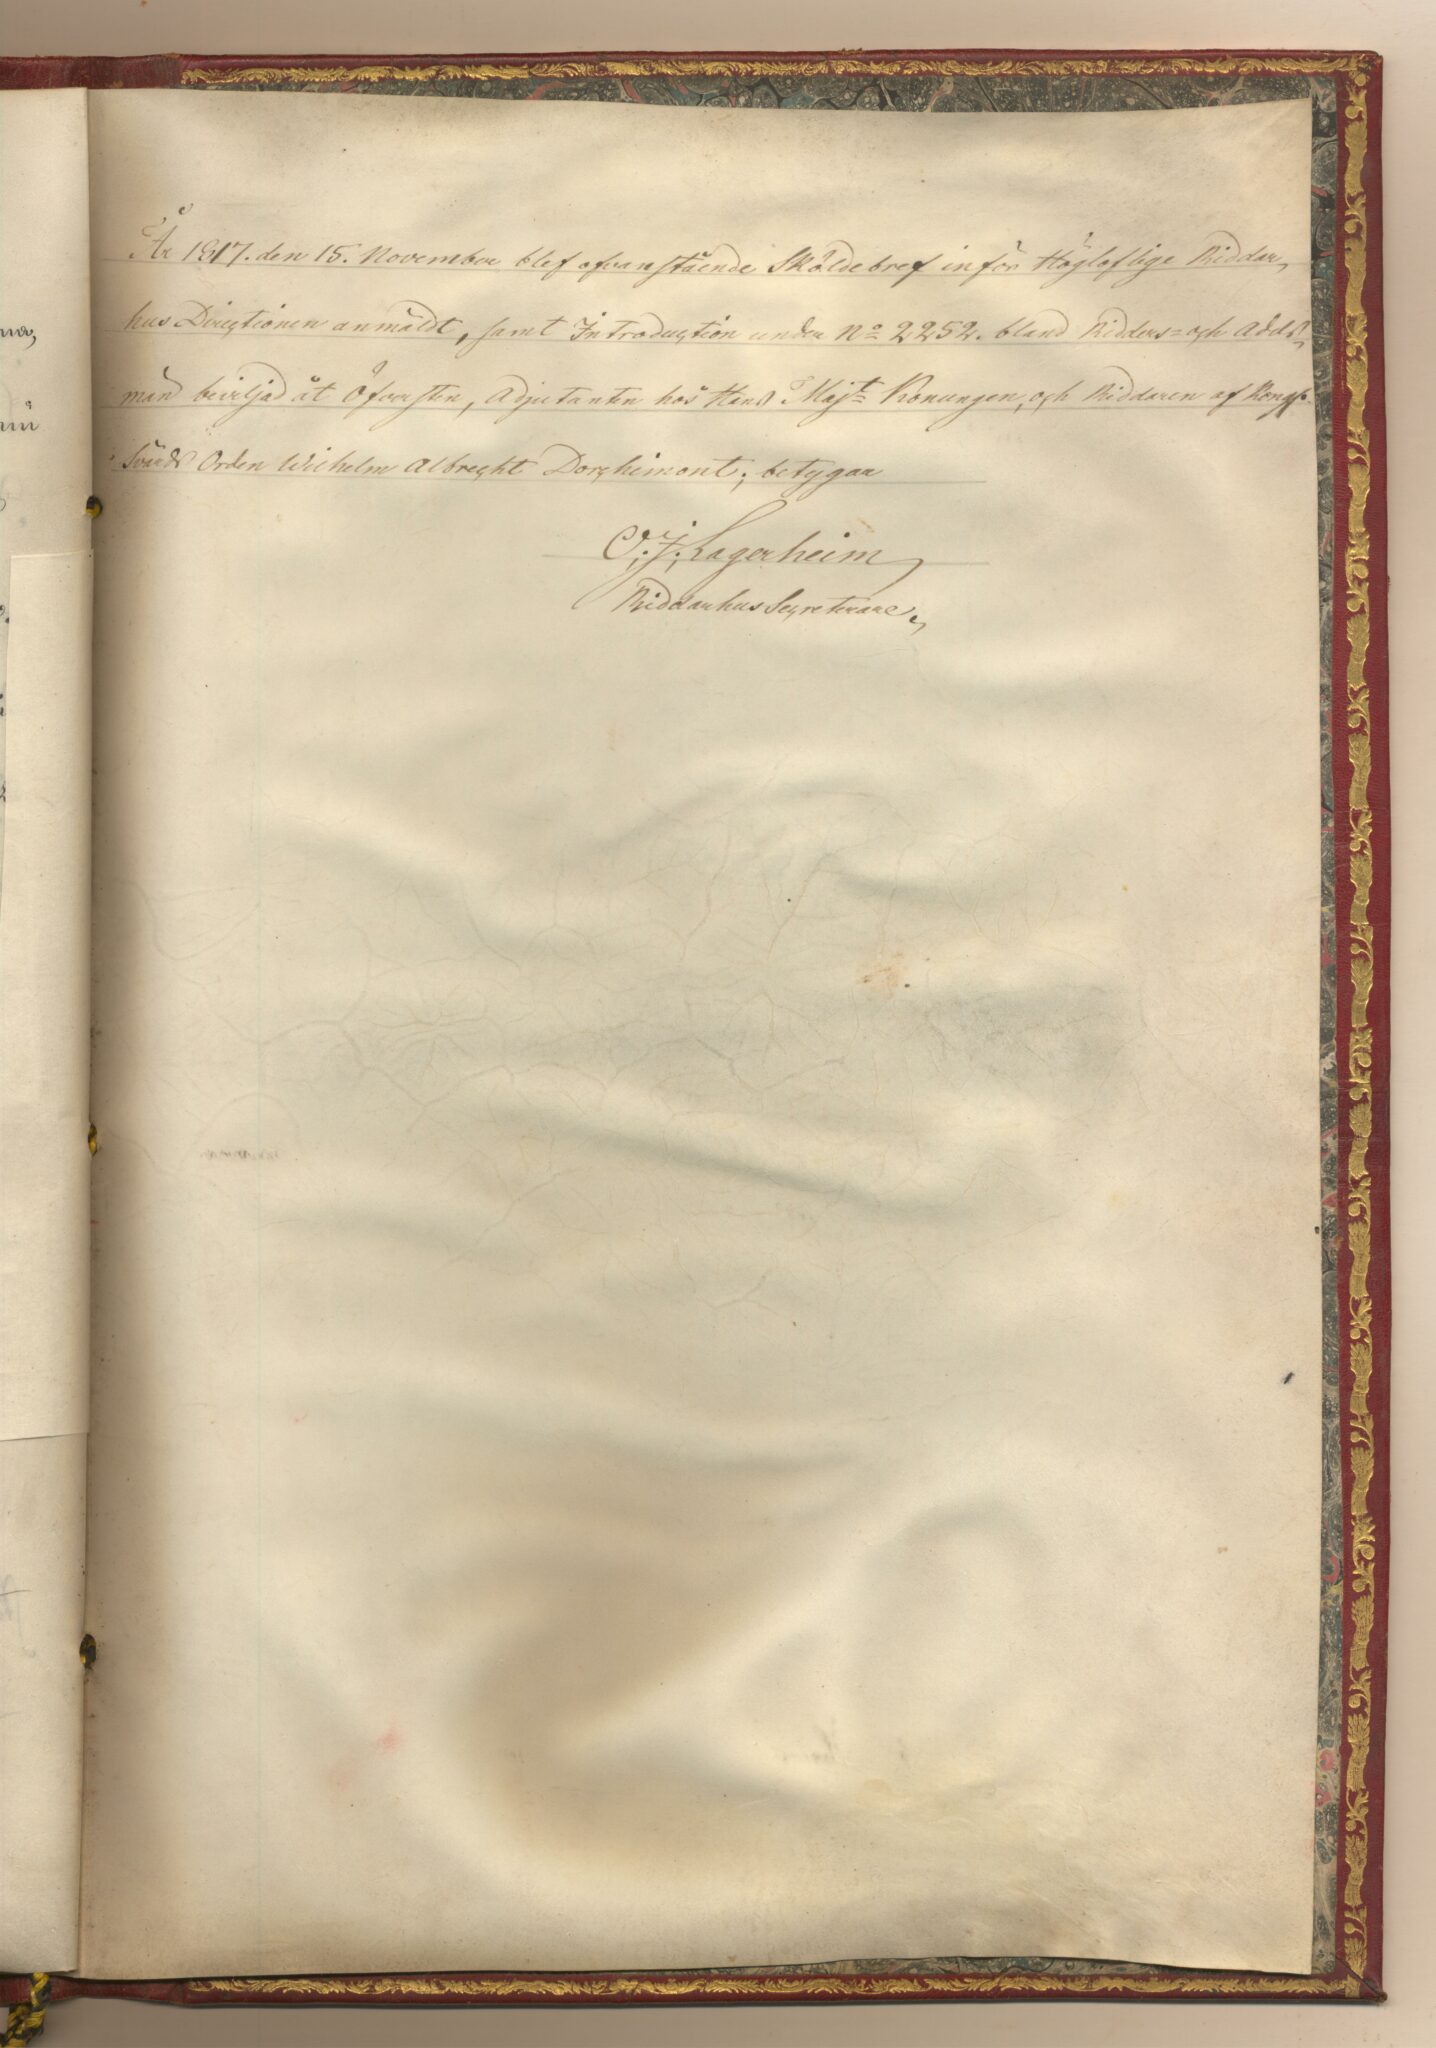 År 1817. den 15. November blef ofvanstående Sköldebref inför Högloflige Riddar,
hus Directionen anmäldt, samt Introduction under No 2252. bland Ridders- och Adels,
män beviljad åt Öfversten, Adjutanten hos Hans Majt Konungen, och Riddaren af Kongl.
Svärds Orden Wilhelm Albrecht Dorchimont; betygar
C. J. Lagerheim
Riddarhus Secreterare.